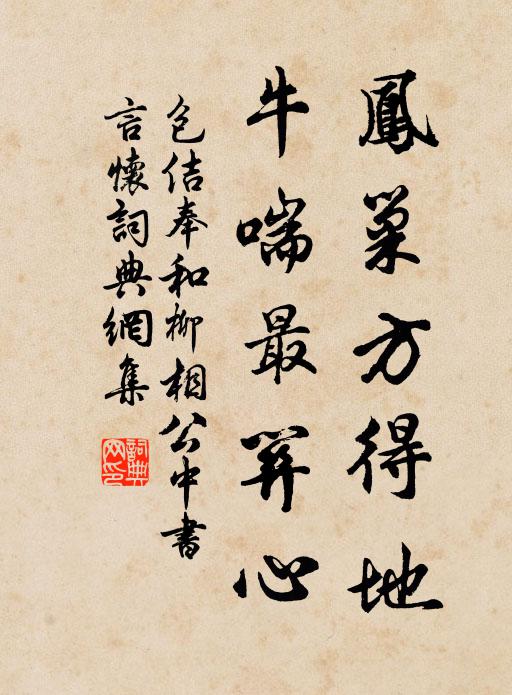 鳳巢方得地
牛喘最關心
包佶奉和柳相公中書
言懷詞典網集
詞典
网印